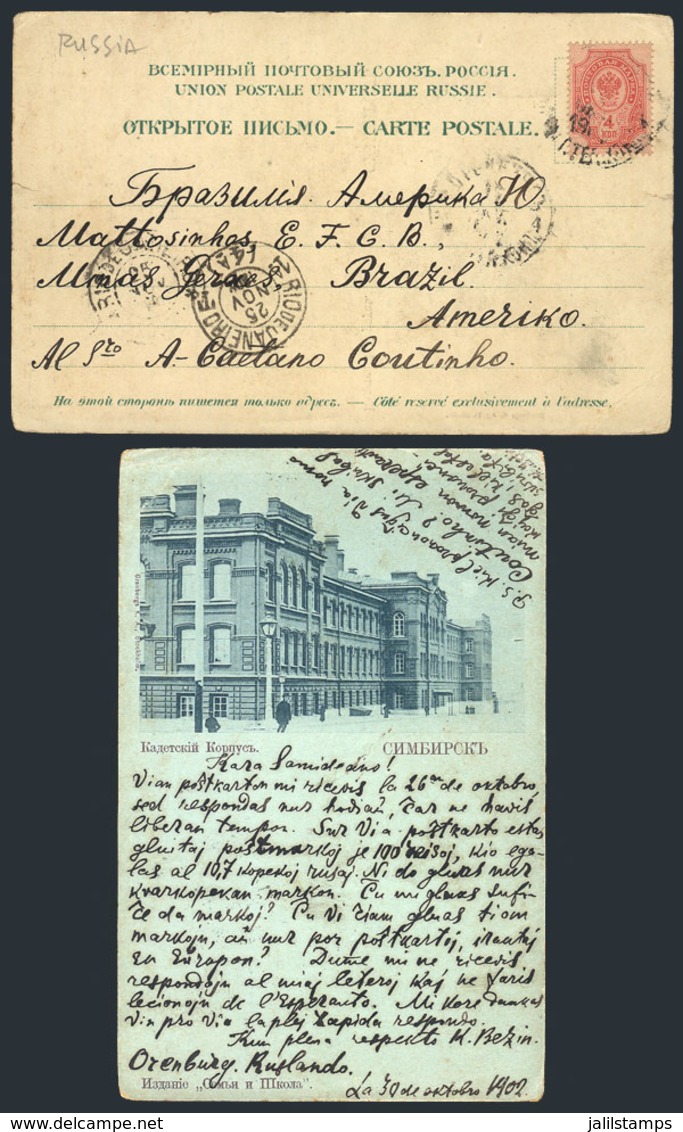 RUSSIA
ВСЕМІРНЫЙ ПОЧТОВЫЙ СОЮЗЪ. РОССІЯ.
UNION POSTALE UNIVERSELLE RUSSIE.
ОТКРЫТОЕ ПИСЬМО.— CARTE POSTALE.
4
КОП
Бразилія. Америка Ю
Mattosinhos, E. F. C. B.,
Minas Geraes, Brazil.
Ameriko.
Al Sro A. Caetano Coutinho.
RIO DE JANEIRO
25
NOV
На этой сторонѣ пишется только адресъ. — Côté réservé exclusivement à l'adresse.
P.S. Kiel prononci
Via nomo
Coutinho?
Кадетскій Корпусъ. СИМБИРСКЪ
Kara Samideano!
Vian poŝtkarton mi ricevis la 26an de oktobro,
sed respondas nur hodiaŭ, ĉar ne havis
liberan tempon. Sur Via poŝtkarto estas
gluitaj poŝtmarkoj je 100 reisoj, kio ega-
las al 10,7 kopekoj rusaj. Ni do gluas nur
kvarkopekan markon. Ĉu mi gluas sufi-
ĉe da markoj? Ĉu Vi ĉiam gluas tiom
markojn, aŭ nur por poŝtkartoj, irantaj
en Eŭropon? Dume mi ne ricevis
respondojn al miaj leteroj kaj ne faris
lecionojn de l'Esperanto. Mi kore dankas
Vin pro Via laplej rapida respondo.
Kun plena respekto K. Bezin.
Orenburg. Ruslando.
Изданіе „Семьи и Школа".
La 30 de oktobro 1902.
jalilstamps